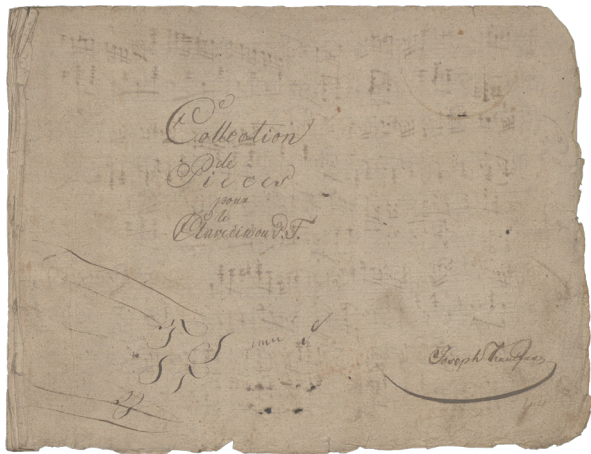 Collection
de
Pieces
pour
le
Clavecin ou P. F.
Joseph